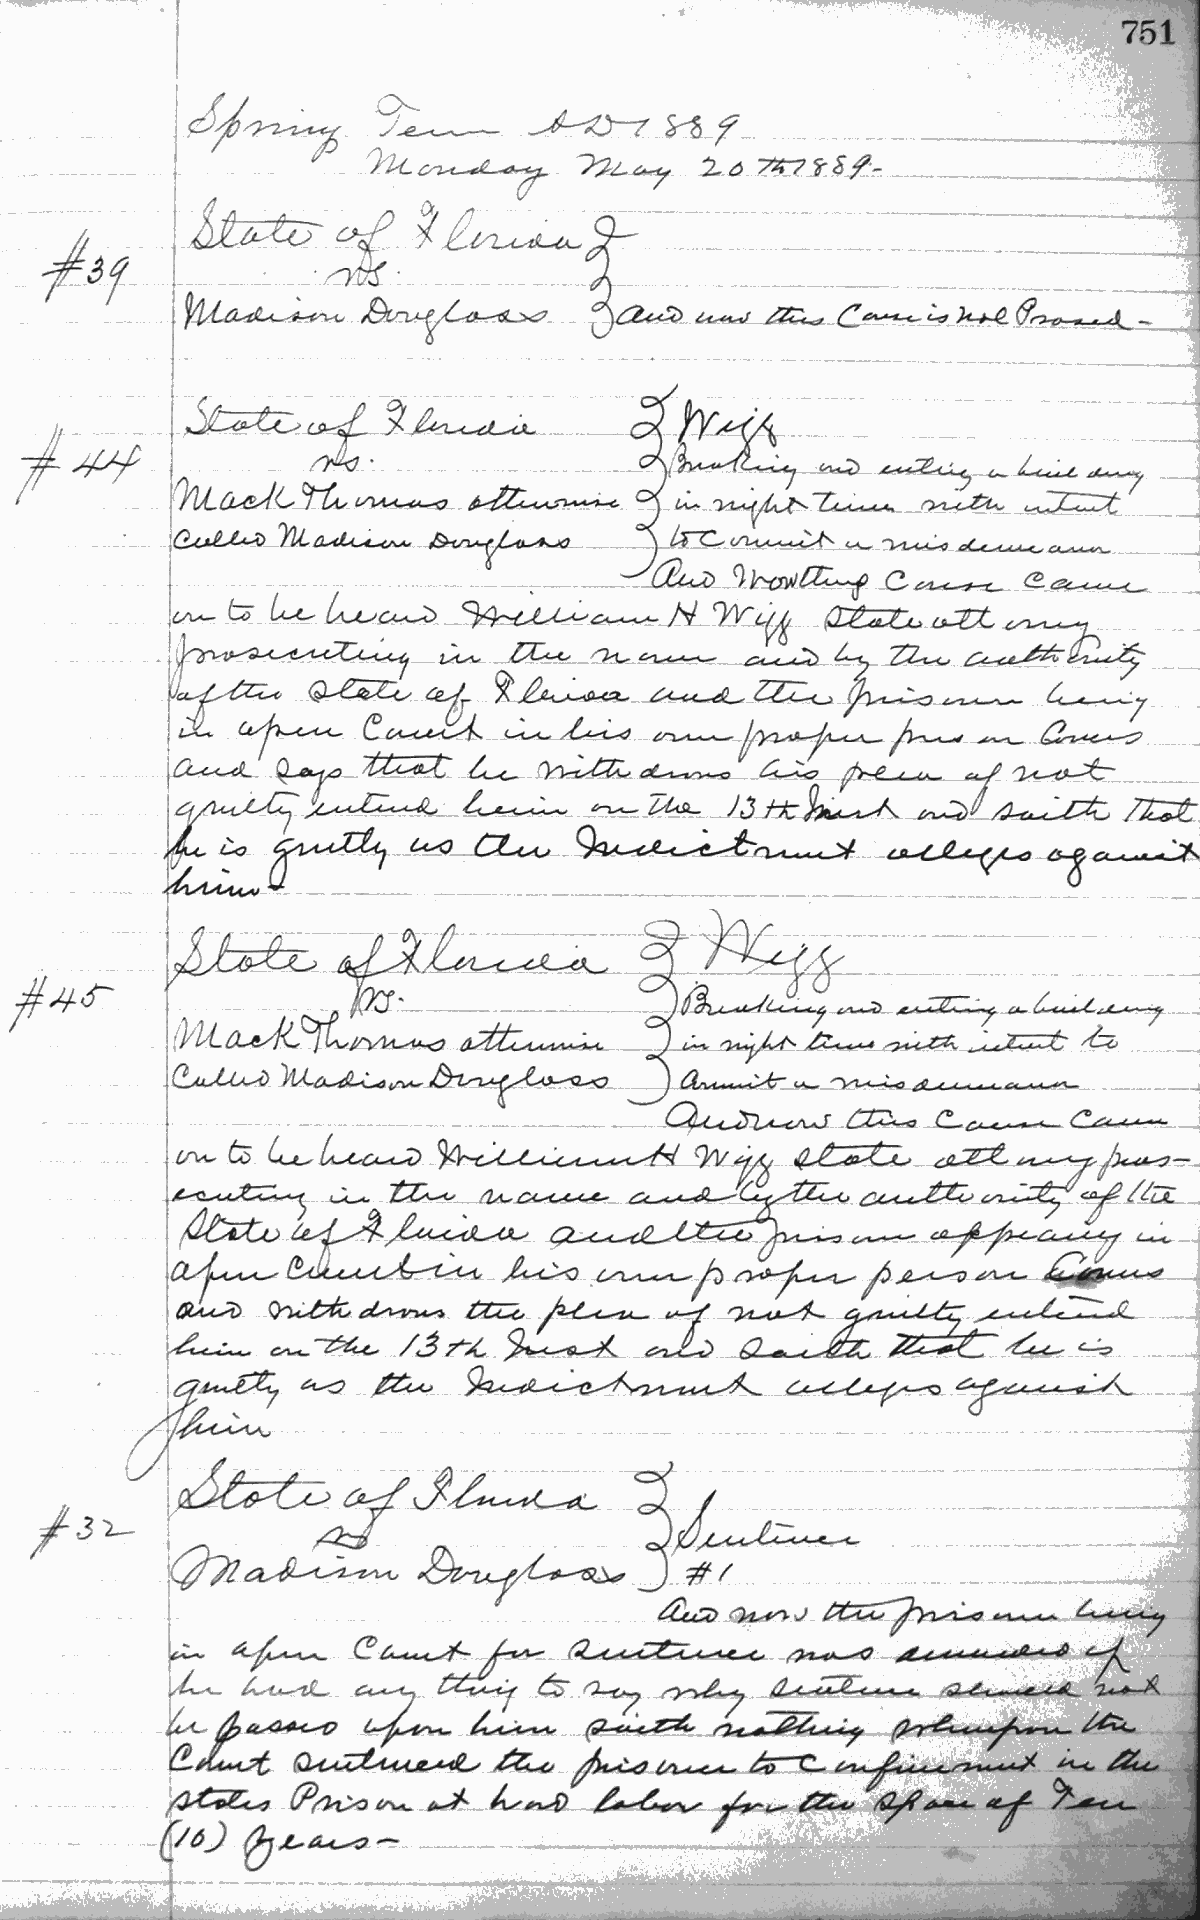 751
Spring Term AD 1889
Monday May 20th 1889-
State of Florida
#39
vs.
Madison Douglass and now this Cause is Nol Prosed -
State of Florida Wigg
#44
vs. Breaking and entring a building
Mack Thomas otherwise in night time with intent
Called Madison Douglass to Commit a misdemeanor
And Now this Cause Came
on to be heard William H Wigg State attorney
prosecuting in the name and by the authority
of the State of Florida and the prisoner being
in open Court in his own proper person Comes
and says that he withdraws his plea of not
guilty entered herein on the 13th Inst and saith that
he is guilty as the Indictment alleges against
him-
State of Florida Wigg
#45
vs. Breaking and entring a building
Mack Thomas otherwise in night time with intent to
Called Madison Douglass Commit a misdemeanor
And now this Cause Came
on to be heard William H Wigg State attorney pros-
ecuting in the name and by the authority of the
State of Florida and the prisoner appearing in
open Court in his own proper person Comes
and withdraws the plea of not guilty entered
herein on the 13th Inst and saith that he is
guilty as the Indictment alleges against
him
State of Florida
#32
vs Sentence
Madison Douglass #1
And now the prisoner being
in open Court for sentence was if
he had any thing to say why sentence should not
be passed upon him saith nothing whereupon the
Court sentenced the prisoner to Confinement in the
states Prison at hard labor for the space of Ten
(10) years-